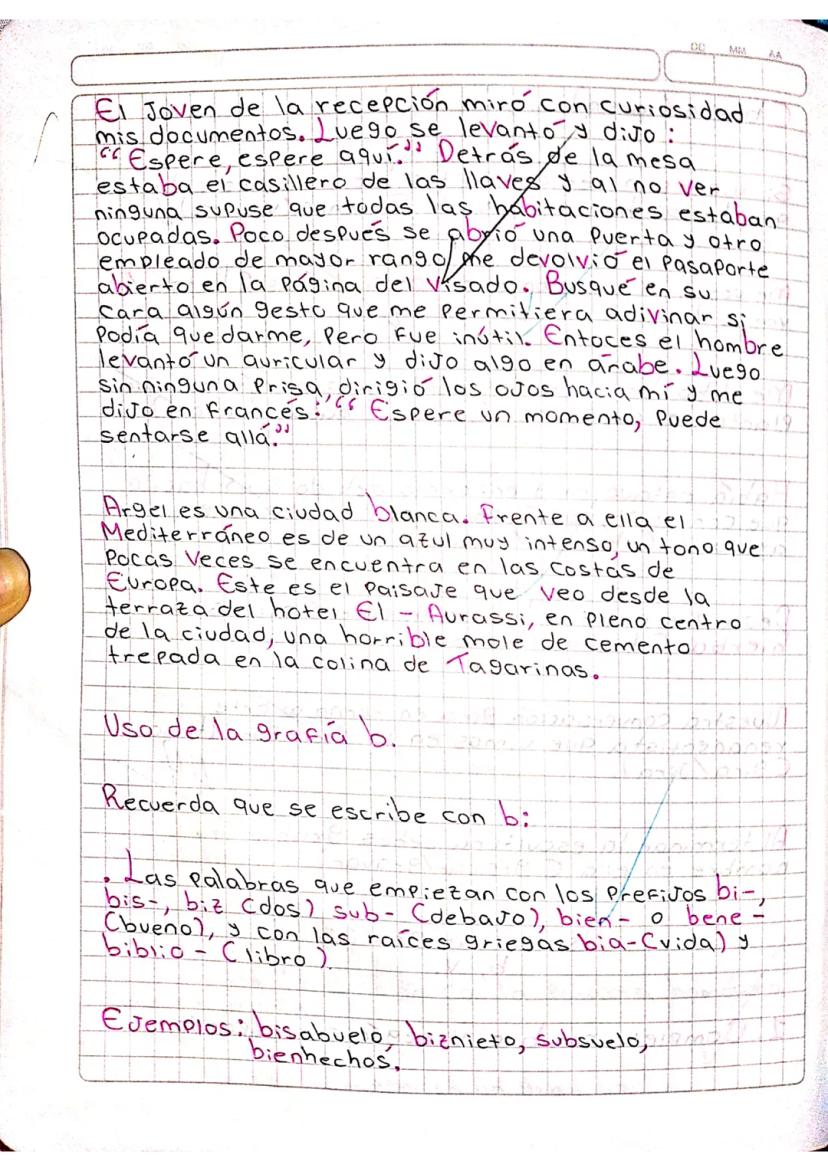 DC MM AA
El Joven de la recepción miró con curiosidad
mis documentos. Luego se levantó y dijo :
“ Espere, espere aquí.” Detrás de la mesa
estaba el casillero de las llaves y al no ver
ninguna supuse que todas las habitaciones estaban
ocupadas. Poco después se abrió una puerta y otro
empleado de mayor rango me devolvió el Pasaporte
abierto en la página del visado. Busqué en su
cara algún gesto que me permitiera adivinar si
podía quedarme, pero fue inútil. Entoces el hombre
levantó un auricular y dijo algo en árabe. Luego
sin ninguna prisa, dirigió los ojos hacia mí y me
dijo en francés: “ Espere un momento, puede
sentarse allá.”
Argel es una ciudad blanca. Frente a ella el
Mediterráneo es de un azul muy intenso, un tono que
pocas veces se encuentra en las costas de
Europa. Este es el paisaje que veo desde la
terraza del hotel El - Aurassi, en pleno centro
de la ciudad, una horrible mole de cemento
trepada en la colina de Tagarinas.
Uso de la grafía b.
Recuerda que se escribe con b:
. Las palabras que empiezan con los prefijos bi-,
bis-, biz (dos) sub- (debajo), bien- o bene -
(bueno), y con las raíces griegas bia-(vida) y
biblio - (libro)
Ejemplos: bisabuelo, biznieto, subsuelo,
bienhechos.